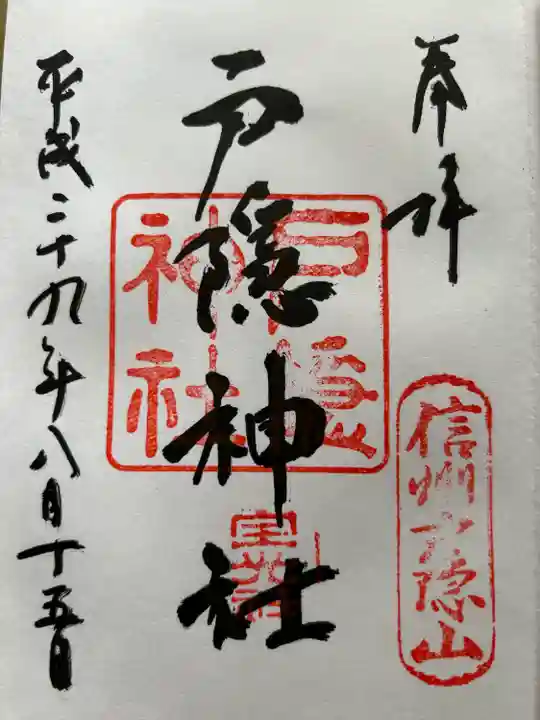 奉拝
信州戸隠山
戸隠神社
戸隠神社
平成二十九年八月十五日